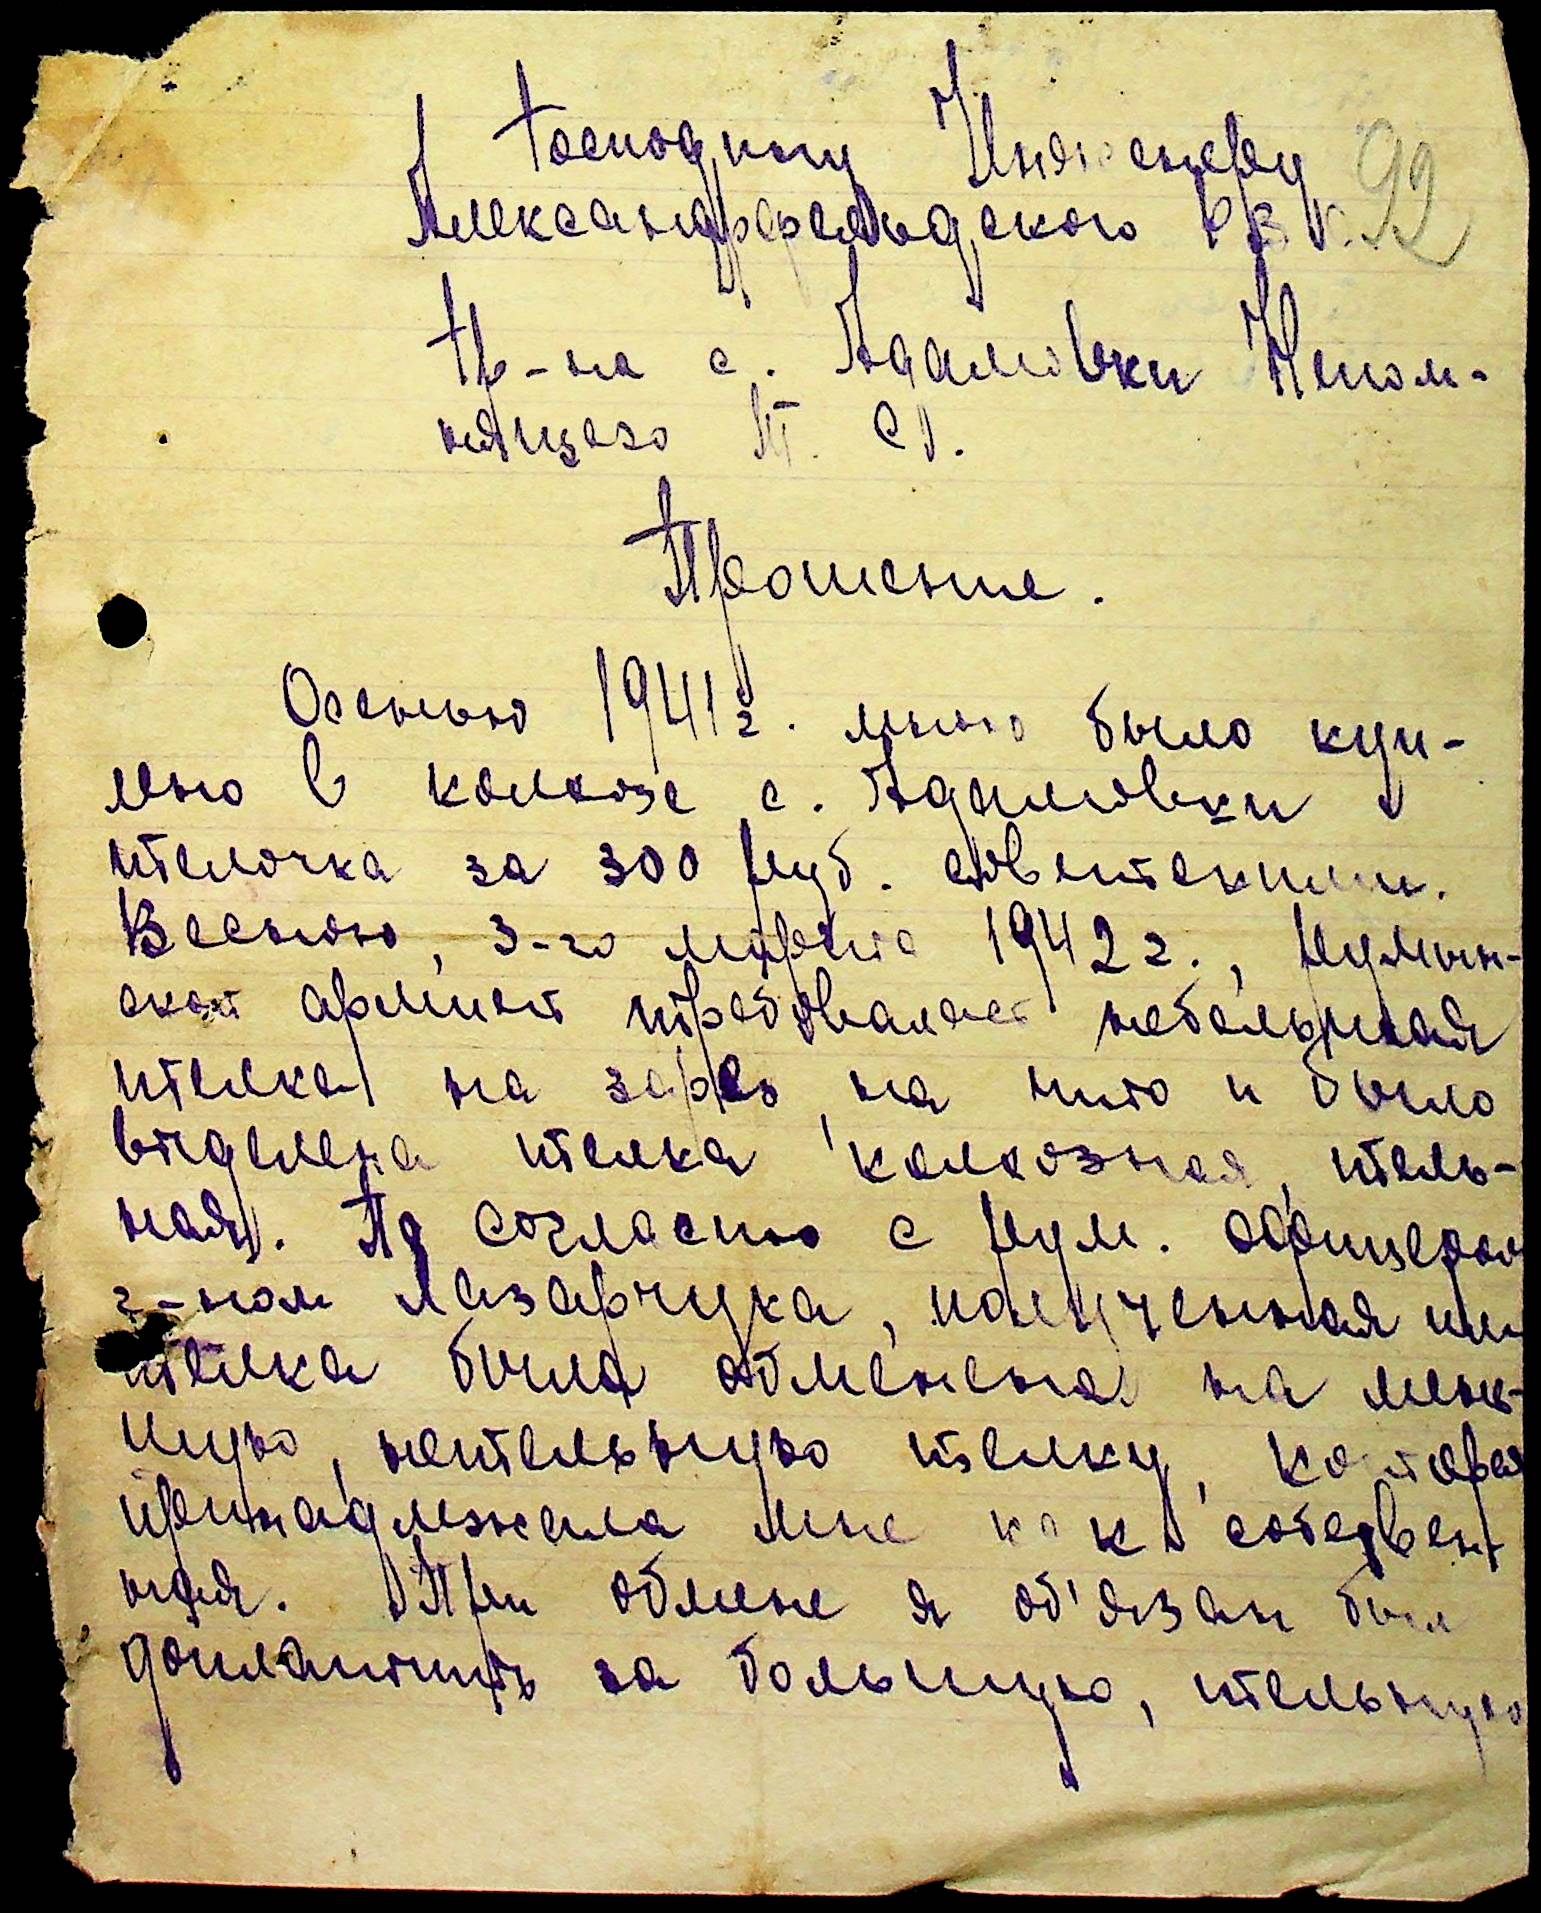 Господину Инженеру 92
Александрфельдского Р З К.
Гр-на с. Адамовки Непом-
нящего
Прошение.
Осенью 1941 г. мною было куп-
лено в колхозе с. Адамовки
телочка за 300 руб. советскими.
Весною, 3-го марта 1942 г., румын-
ской армией требовалась небольшая
телка на зарез, на что и было
выделена телка колхозная, тель-
ная. По согласию с рум. офицером
г-ном Лазарчука, полученная им
телка была обменена на мень-
шую, нетельную телку, которая
принадлежала мне как собствен
ная. При обмене я об'язан был
доплатить за большую, тельную